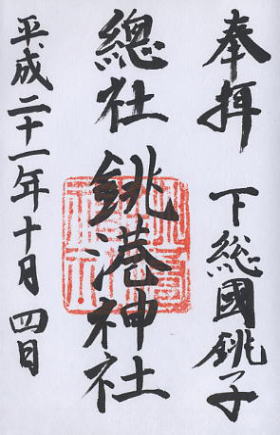 奉拝　下総國銚子
總社　銚港神社
平成二十一年十月四日